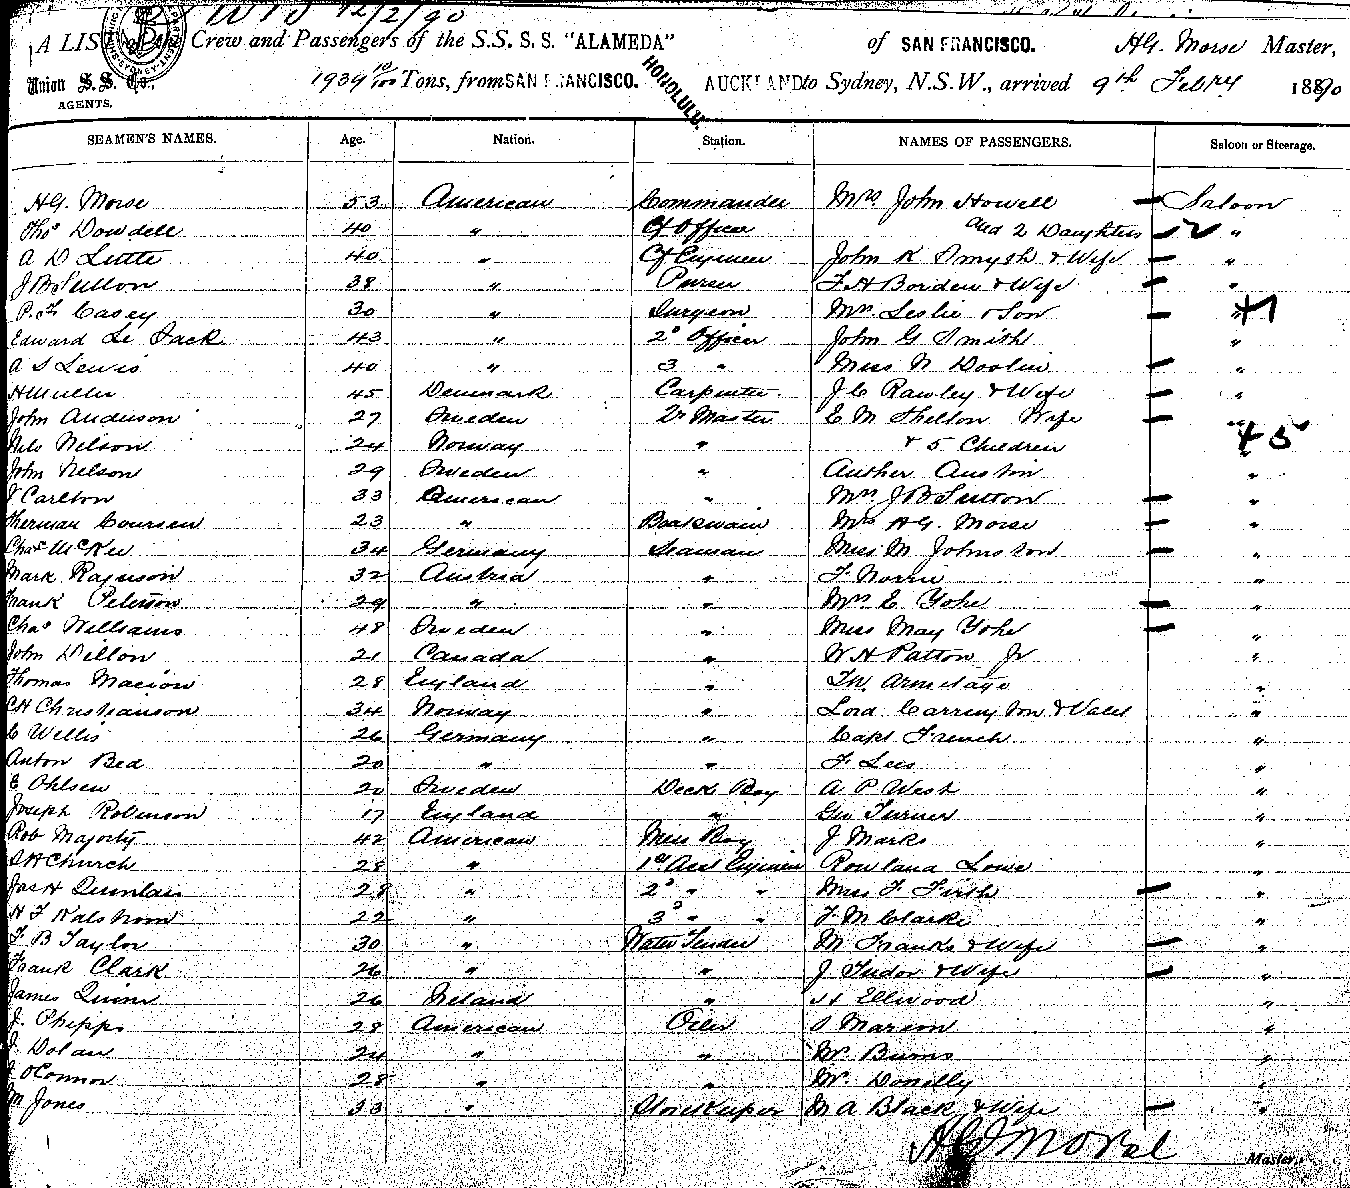 WTS 12/2/90
A LIST of the Crew and Passengers of the S.S. S. S. "ALAMEDA" of SAN FRANCISCO. HG. Morse Master,
Union S. S. Co., 1939 10/100 Tons, from SAN FRANCISCO. HONOLULU. AUCKLAND to Sydney, N.S.W., arrived 9th Febry 1890
AGENTS.
SEAMEN'S NAMES. Age. Nation. Station. NAMES OF PASSENGERS. Saloon or Steerage.
HG. Morse 53 American Commander Mrs John Howell Saloon
Thos Dowdell 40 " Cf Officer and 2 Daughters "
A D Little 40 " Cf Engineer John K Smyth & Wife "
J B Sutton 38 " Purser F. H Borden & Wife "
P. F. Casey 30 " Surgeon Mrs Leslie & Son " +1
Edward Le Jack 43 " 2d Officer John G Smith "
A S Lewis 40 " 3 " Miss N Doolin "
H Muller 45 Denmark Carpenter J C Rawley & Wife "
John Anderson 27 Sweden Qr Master E M Shelton Wife "
Nils Nelson 24 Norway " & 5 Children " +5
John Nelson 29 Sweden " Auther Austin "
Carlton 33 American " Mrs J B Sutton "
Herman Coursen 23 " Boatswain Mrs HG. Morse "
Chas McKee 34 Germany Seaman Miss M Johnston "
Mark Raguson 32 Austria " F Norrie "
Frank Peterson 29 " " Mrs E Yohe "
Chas Williams 48 Sweden " Miss May Yohe "
John Dillon 21 Canada " W H Patton Jr "
Thomas Macion 28 England " Armitage "
CH Christianson 34 Norway " Lord Carrington & Valet "
C Willis 26 Germany " Capt French "
Anton Bed 20 " " F Lees "
E Ohlsen 20 Sweden Deck Boy A P West "
Joseph Robinson 17 England " Geo Turner "
Rob Majorty 42 American Mess Boy J Marks "
S H Church 28 " 1st Asst Engineer Rowland Lowe "
Jas H Quinlan 28 " 2d " " Miss F Firth "
H F Walstrom 22 " 3d " " J. M Clarke "
F B Taylor 30 " Water Tender M Franks & Wife "
Frank Clark 26 " " J Tudor & Wife "
James Quinn 26 Ireland " H Ellwood "
J. Phipps 28 American Oiler S Marion "
J Dolan 24 " " Mr Burns "
J OConnor 28 " " Mr. Donilly "
M Jones 33 " Storekeeper M A Black & Wife "
HG Morse
Master.